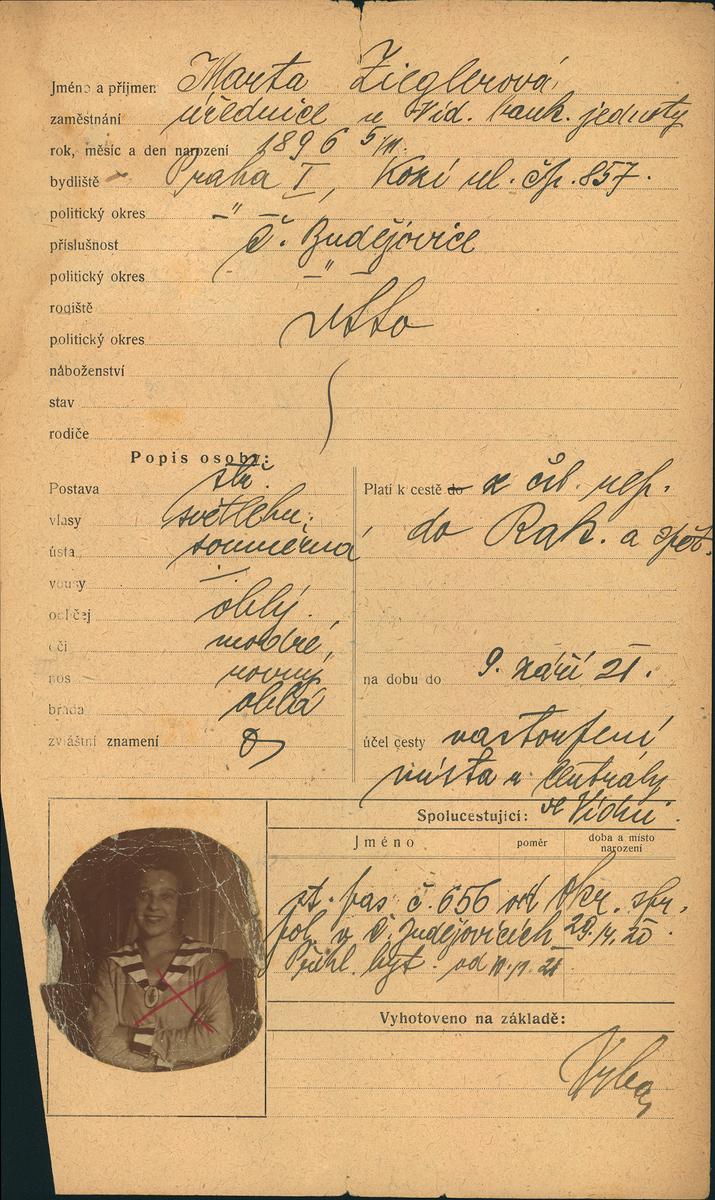 Jméno a příjmení Marta Zieglerová
zaměstnání úřednice u Víd. bank. jednoty
rok, měsíc a den narození 1896 5/
bydliště Praha I, Kozí ul. čp. 857.
politický okres — " —
příslušnost Č. Budějovice
politický okres — " —
rodiště
politický okres
náboženství
stav
rodiče
Popis osoby:
Postava stř.
vlasy světlehn.
ústa souměrná
vousy —
obličej oblý.
oči modré,
nos rovný
brada oblá
zvláštní znamení
Platí k cestě do z čsl. rep.
do Rak. a zpět.
na dobu do 9. září 21.
účel cesty nastoupení
místa u centrály
ve Vídni.
Spolucestující:
Jméno poměr doba a místo narození
st. pas č. 656 od Okr. spr.
pol. v Č. Budějovicích 20.
byt. od
Vyhotoveno na základě: